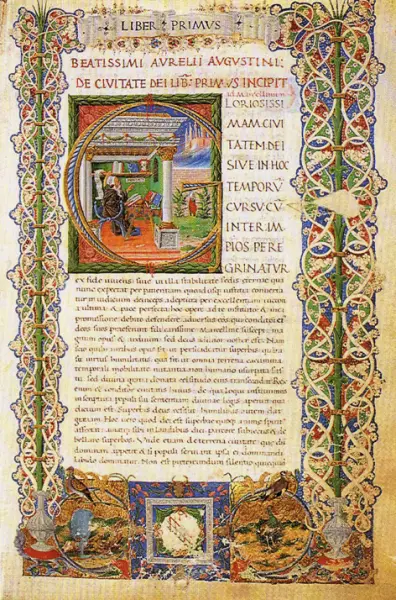 LIBER PRIMVS
BEATISSIMI AVRELII AVGVSTINI:
DE CIVITATE DEI LIB: PRIMVS INCIPIT
ad Marcellinum
G LORIOSISSI
MAM CIVI
TATEM DEI
SIVE IN HOC
TEMPORV̄
CVRSV CV̄
INTER IM
PIOS PERE
GRINATVR
ex fide vivens: sive in illa stabilitate sedis eternae quā
nunc expectat per patientiam quoadusq iustitia converta
tur in iudicium deinceps adeptura per excellentiam victori
a ultima & pace perfecta: hoc opere ad te instituto &
promissione debito defendere adversus eos qui conditori ei
deos suos praeferunt fili carissime Marcelline suscepi: ma
gnum opus & arduum: sed deus adiutor noster est: Nam
scio quibus viribus opus sit ut persuadeatur superbis quāta
sit virtus humilitatis: qua fit ut omnia terrena cacumina
temporali mobilitate nutantia non humano usurpata fas
tu: sed divina gratia donata celsitudo transcendat: Rex
enim & conditor civitatis huius: de qua loqui instituimus
in scriptura populi sui sententiam divinae legis aperuit qua
dictum est: Superbis deus resistit: humilibus autem dat
gratiam: Hoc vero quod dei est superbae quoq animae spirit
affectat: amatq sibi in laudibus dici: parcere subiectis &
debellare superbos: Vnde etiam de terrena civitate: quae cū
dominari appetit & si populi serviant ipsa ei dominandi
libido dominatur. Non est praetereundum silentio quicquid